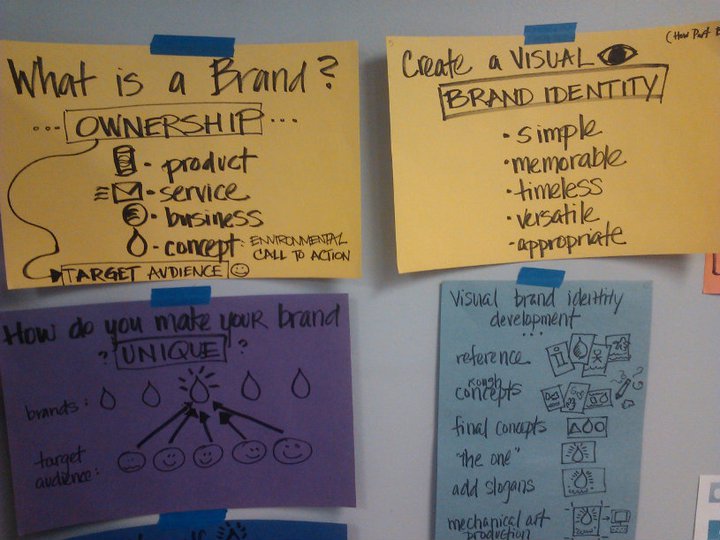 What is a Brand?
... OWNERSHIP ...
- product
- service
- business
- concept: ENVIRONMENTAL
CALL TO ACTION
TARGET AUDIENCE
Create a VISUAL
BRAND IDENTITY
• simple
• memorable
• timeless
• versatile
• appropriate
(How Part
How do you make your brand
? UNIQUE ?
brands:
target
audience:
visual brand identity
development
...
reference
rough
concepts
final concepts
"the one"
add slogans
mechanical art
production